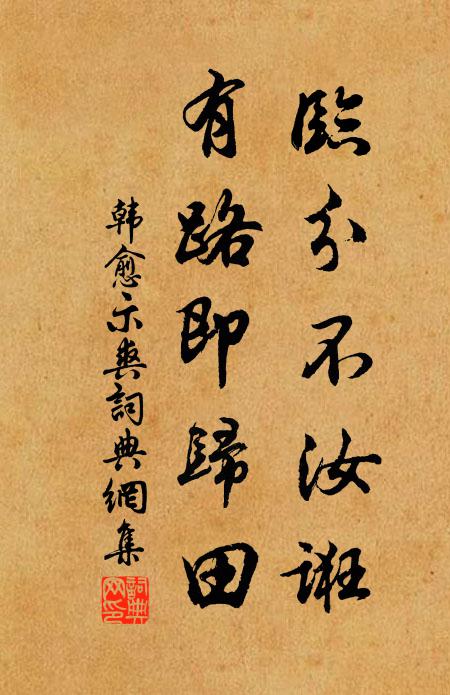 臨分不汝誑
有路即歸田
韓愈示爽詞典網集
詞典網印